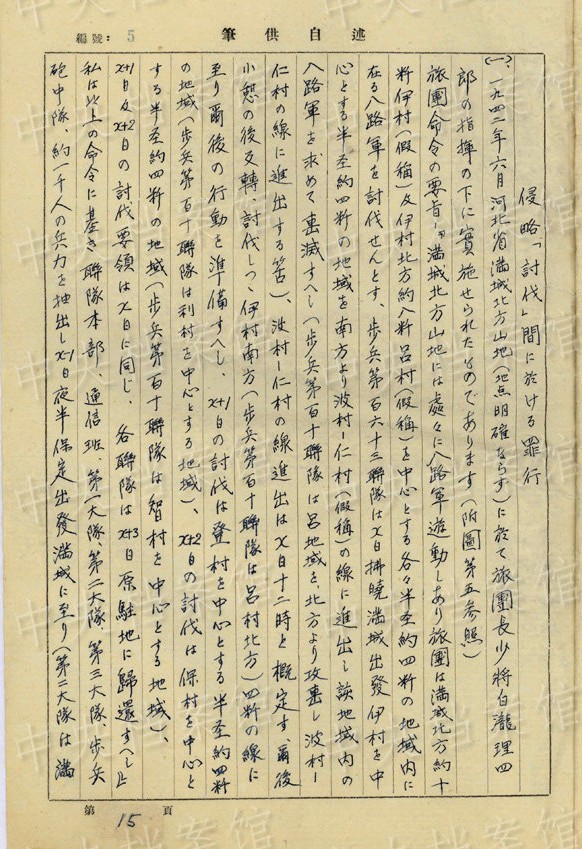 筆供自述
編號：5
侵略「討伐」間に於ける罪行
(一)、一九四二年六月河北省満城北方山地(地点明確ならず)に於て旅團長少將白瀧理四
郎の指揮の下に實施せられたものであります(附圖第五参照)
旅團命令の要旨「満城北方山地には處々に八路軍遊動しあり旅團は満城北方約十
粁伊村(假稱)及伊村北方約八粁呂村(假稱)を中心とする各々半圣約四粁の地域内に
在る八路軍を討伐せんとす、歩兵第百六十三聯隊はX日拂曉満城出發伊村を中
心とする半圣約四粁の地域を南方より波村—仁村(假稱)の線に進出し該地域内の
八路軍を求めて撃滅すへし(歩兵第百十聯隊は呂地域を、北方より攻撃し波村—
仁村の線に進出する筈)、波村—仁村の線進出はX日十二時と概定す、爾後
小憩の後反轉、討伐しつゝ伊村南方(歩兵第百十聯隊は呂村北方)四粁の線に
至り爾後の行動を準備すへし、X+1日の討伐は登村を中心とする半圣約四粁
の地域(歩兵第百十聯隊は利村を中心とする地域)、X+2日の討伐は保村を中心と
する半圣約四粁の地域(歩兵第百十聯隊は智村を中心とする地域)、
X+1日及X+2日の討伐要領はX日に同じ、各聯隊はX+3日原駐地に歸還すへし」
私は此上の命令に基き聯隊本部、通信班、第一大隊、第二大隊、第三大隊、歩兵
砲中隊、約一千人の兵力を抽出しX-1日夜半保定出發満城に至り(第二大隊は満
第15頁
中央档案馆